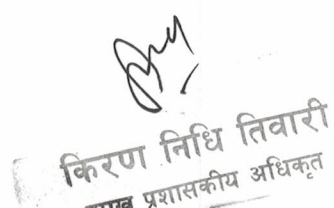 किरण निधि तिवारी
प्रशासकीय अधिकृत